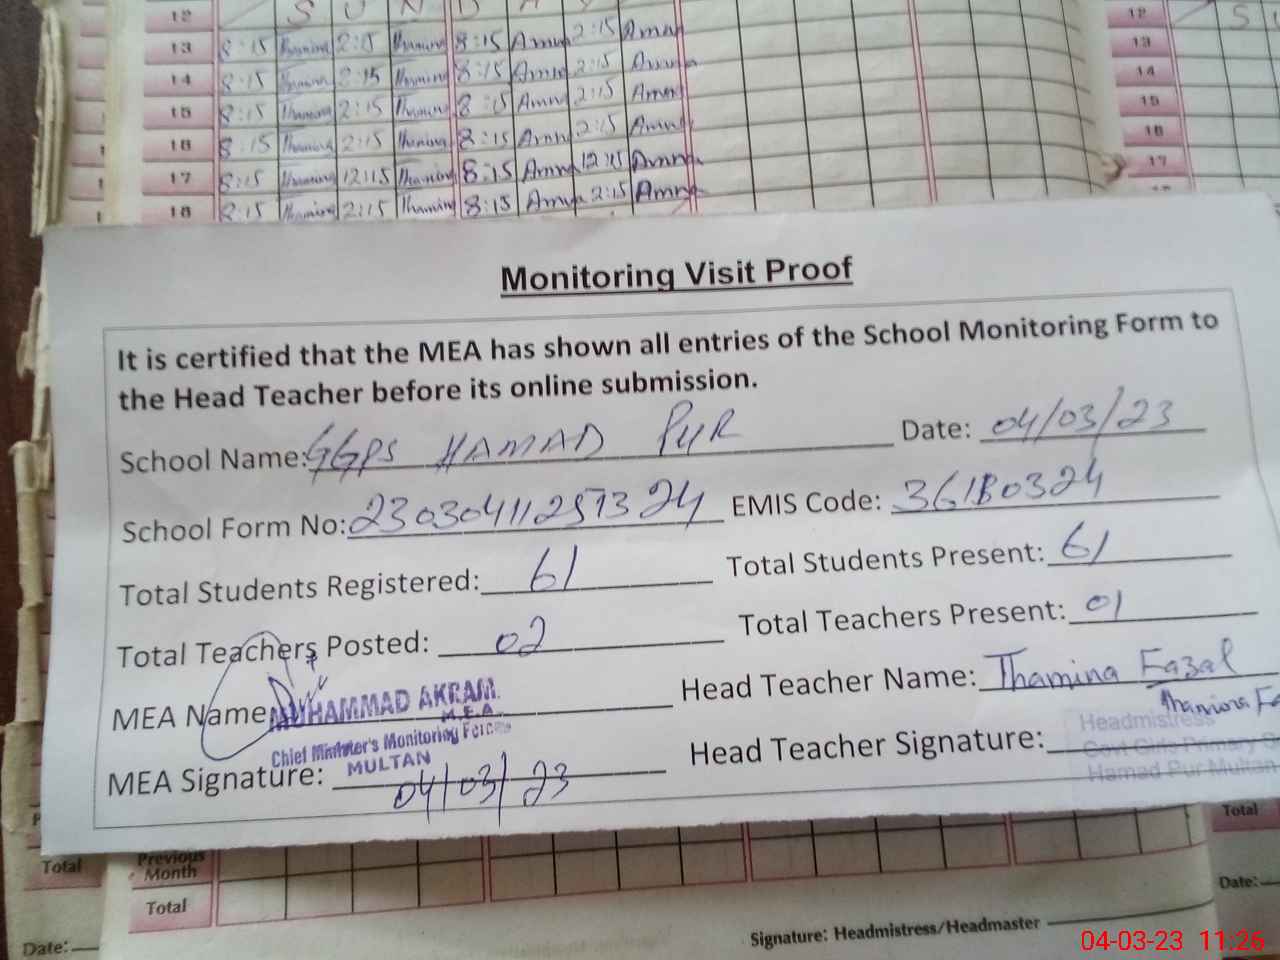 12 S U N D A Y
13 8:15 Thamina 2:15 Thamina 8:15 Amna 2:15 Amna
14 8:15 Thamina 2:15 Thamina 8:15 Amna 2:15 Amna
15 8:15 Thamina 2:15 Thamina 8:15 Amna 2:15 Amna
16 8:15 Thamina 2:15 Thamina 8:15 Amna 2:15 Amna
17 8:15 Thamina 12:15 Thamina 8:15 Amna 12:15 Amna
18 8:15 Thamina 2:15 Thamina 8:15 Amna 2:15 Amna
12 S
13
14
15
16
17
Monitoring Visit Proof
It is certified that the MEA has shown all entries of the School Monitoring Form to
the Head Teacher before its online submission.
School Name: GGPS HAMAD PUR Date: 04/03/23
School Form No: EMIS Code: 36180324
Total Students Registered: 61 Total Students Present: 61
Total Teachers Posted: 02 Total Teachers Present: 01
MEA Name MUHAMMAD AKRAM Head Teacher Name: Thamina Fazal
M.E.A
Chief Minister's Monitoring Forces
MULTAN
MEA Signature: 04/03/23 Head Teacher Signature:
Headmistress
Govt Girls Primary
Hamad Pur Multan
Total
Previous
Month
Total
Total
Date:
Date:
Signature: Headmistress/Headmaster
04-03-23 11:26